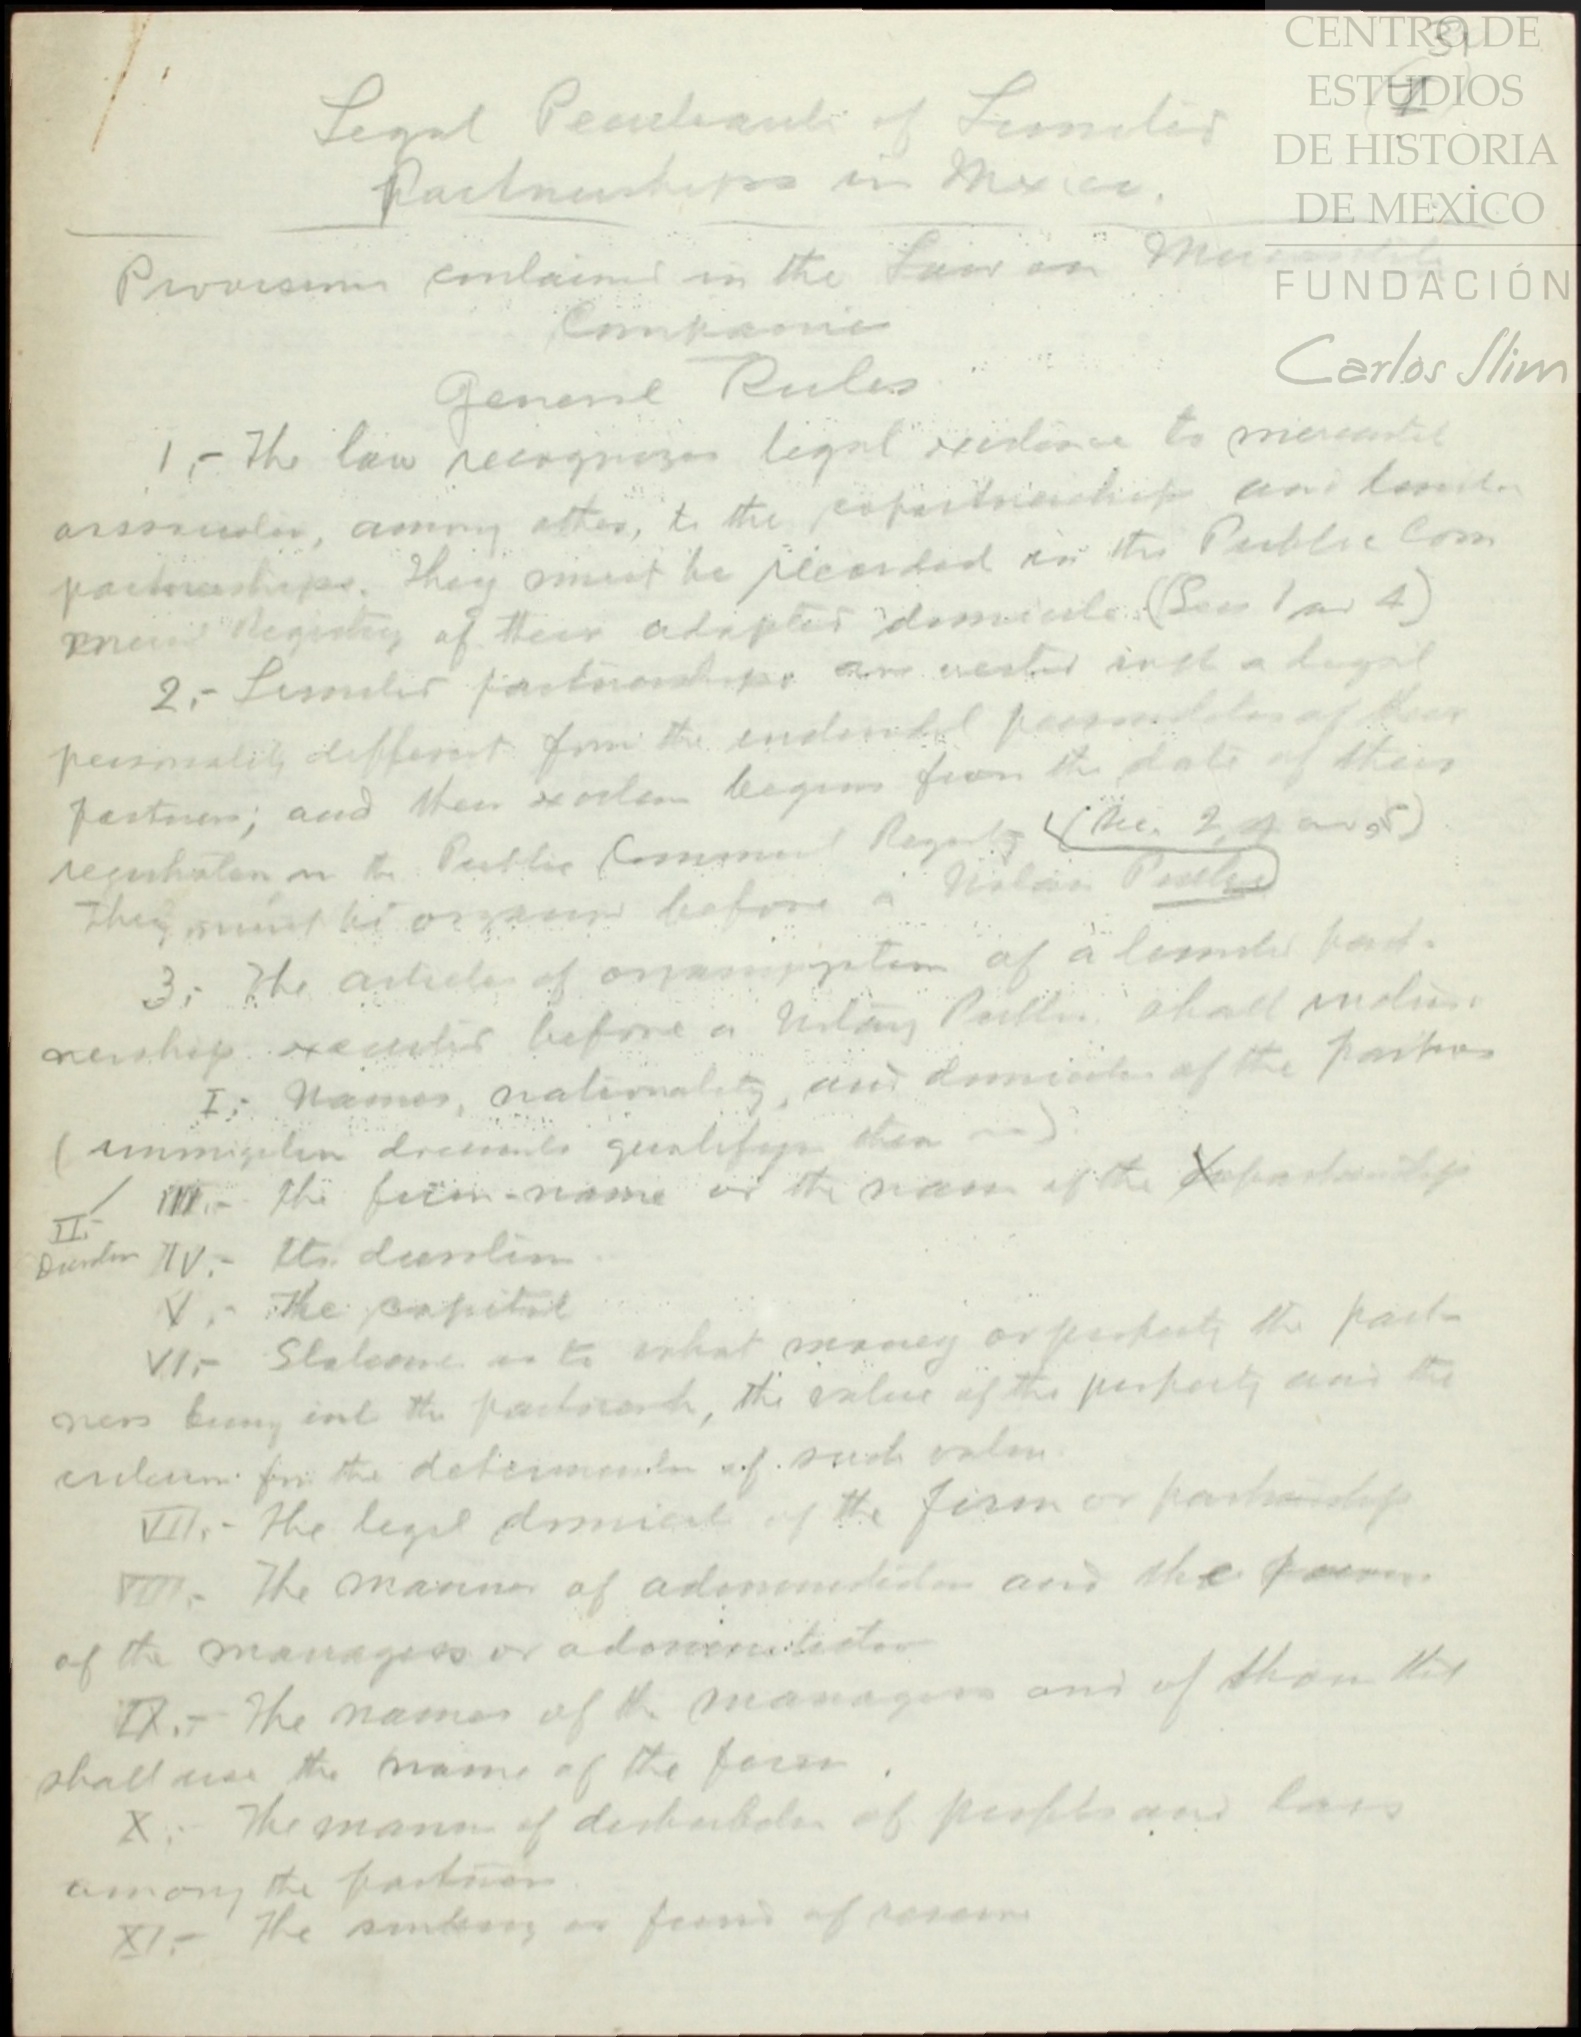 CENTRO DE
ESTUDIOS
DE HISTORIA
DE MEXICO
FUNDACIÓN
Carlos Slim
31
I
Legal of Limited
Partnerships in Mexico.
Provisions contained in the Law on Mercantile
Companies
General Rules
1.- The law recognizes legal existence to mercantil
among others, to the copartnership and limited
partnerships. They must be recorded in the Public Com
Registry of their adopted domicile (Secs 1 and 4)
2.- Limited partnerships are vested with a legal
personality different from the individual personalities of their
partners; and their existence begins from the date of their
registration in the Public Commerce Registry (Sec. 2, and 5)
They must be organized before a Notary Public
3.- The articles of of a limited part-
nership executed before a Notary Public shall include
I.- Names, nationality, and domicile of the partners
( documents
III.- The firm-name or the name of the copartnership
II.-
Duration IV.- Its duration
V.- The capital
VI.- Statement as to what money or property the part-
ners bring into the partnership, the value of the property and the
criterium for the determination of such value
VII.- The legal domicile of the firm or partnership
VIII.- The manner of administration and the powers
of the managers or administrator
IX.- The names of the managers and of those that
shall use the name of the firm.
X.- The manner of distribution of profits and loss
among the partners.
XI.- The or fund of reserve